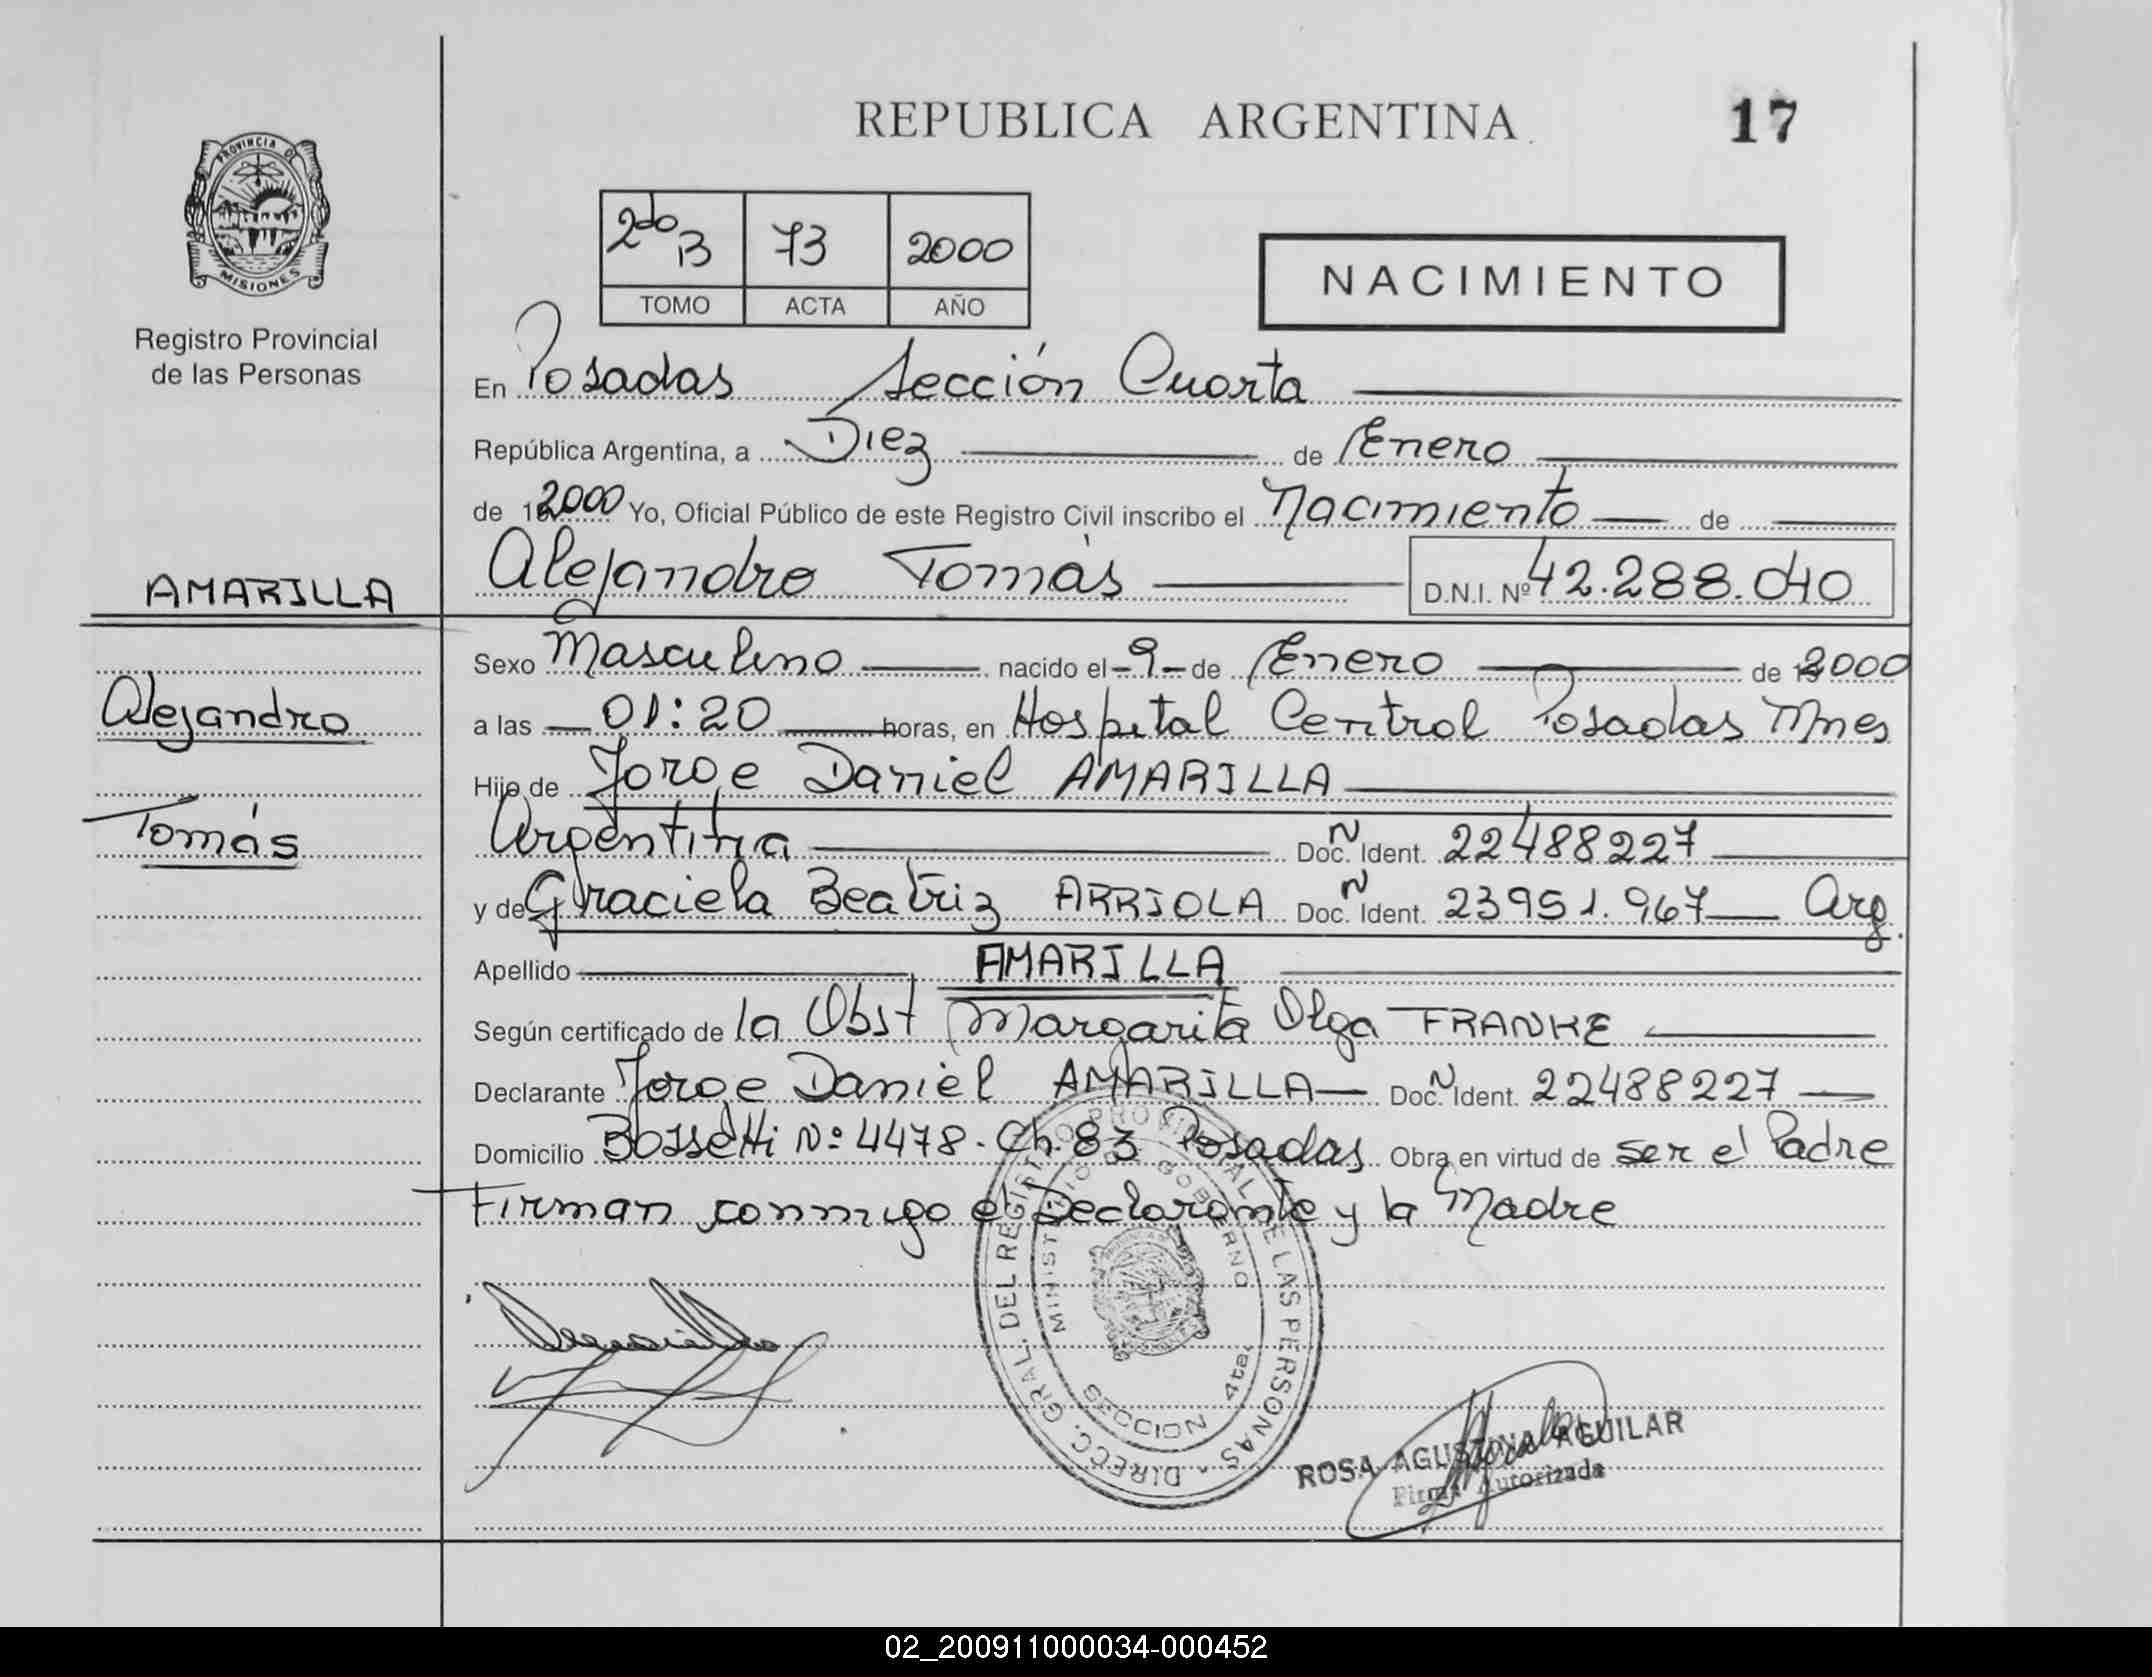 REPUBLICA ARGENTINA
17
PROVINCIA DE
MISIONES
Registro Provincial
de las Personas
2do B 73 2000
TOMO ACTA AÑO
NACIMIENTO
En Posadas Sección Cuarta
República Argentina, a Diez de Enero
de 2000 Yo, Oficial Público de este Registro Civil inscribo el Nacimiento de
Alejandro Tomás D.N.I. Nº 42.288.040
AMARILLA
Alejandro
Tomás
Sexo Masculino nacido el -9- de Enero de 2000
a las 01:20 horas, en Hospital Central Posadas Mnes
Hijo de Jorge Daniel AMARILLA
Argentina Doc. N Ident. 22488227
y de Graciela Beatriz ARRIOLA Doc. N Ident. 23951.967 Arg.
Apellido AMARILLA
Según certificado de la Obst Margarita Olga FRANKE
Declarante Jorge Daniel AMARILLA Doc. N Ident. 22488227
Domicilio Bossetti Nº 4478. Ch. 83 Posadas Obra en virtud de ser el Padre
Firman conmigo el Declarante y la Madre
DIRECC. GRAL. DEL REGISTRO PROVINCIAL DE LAS PERSONAS
MINISTERIO DE GOBIERNO
SECCION 4ta.
ROSA AGUSTINA AGUILAR
Firma Autorizada
02_200911000034-000452